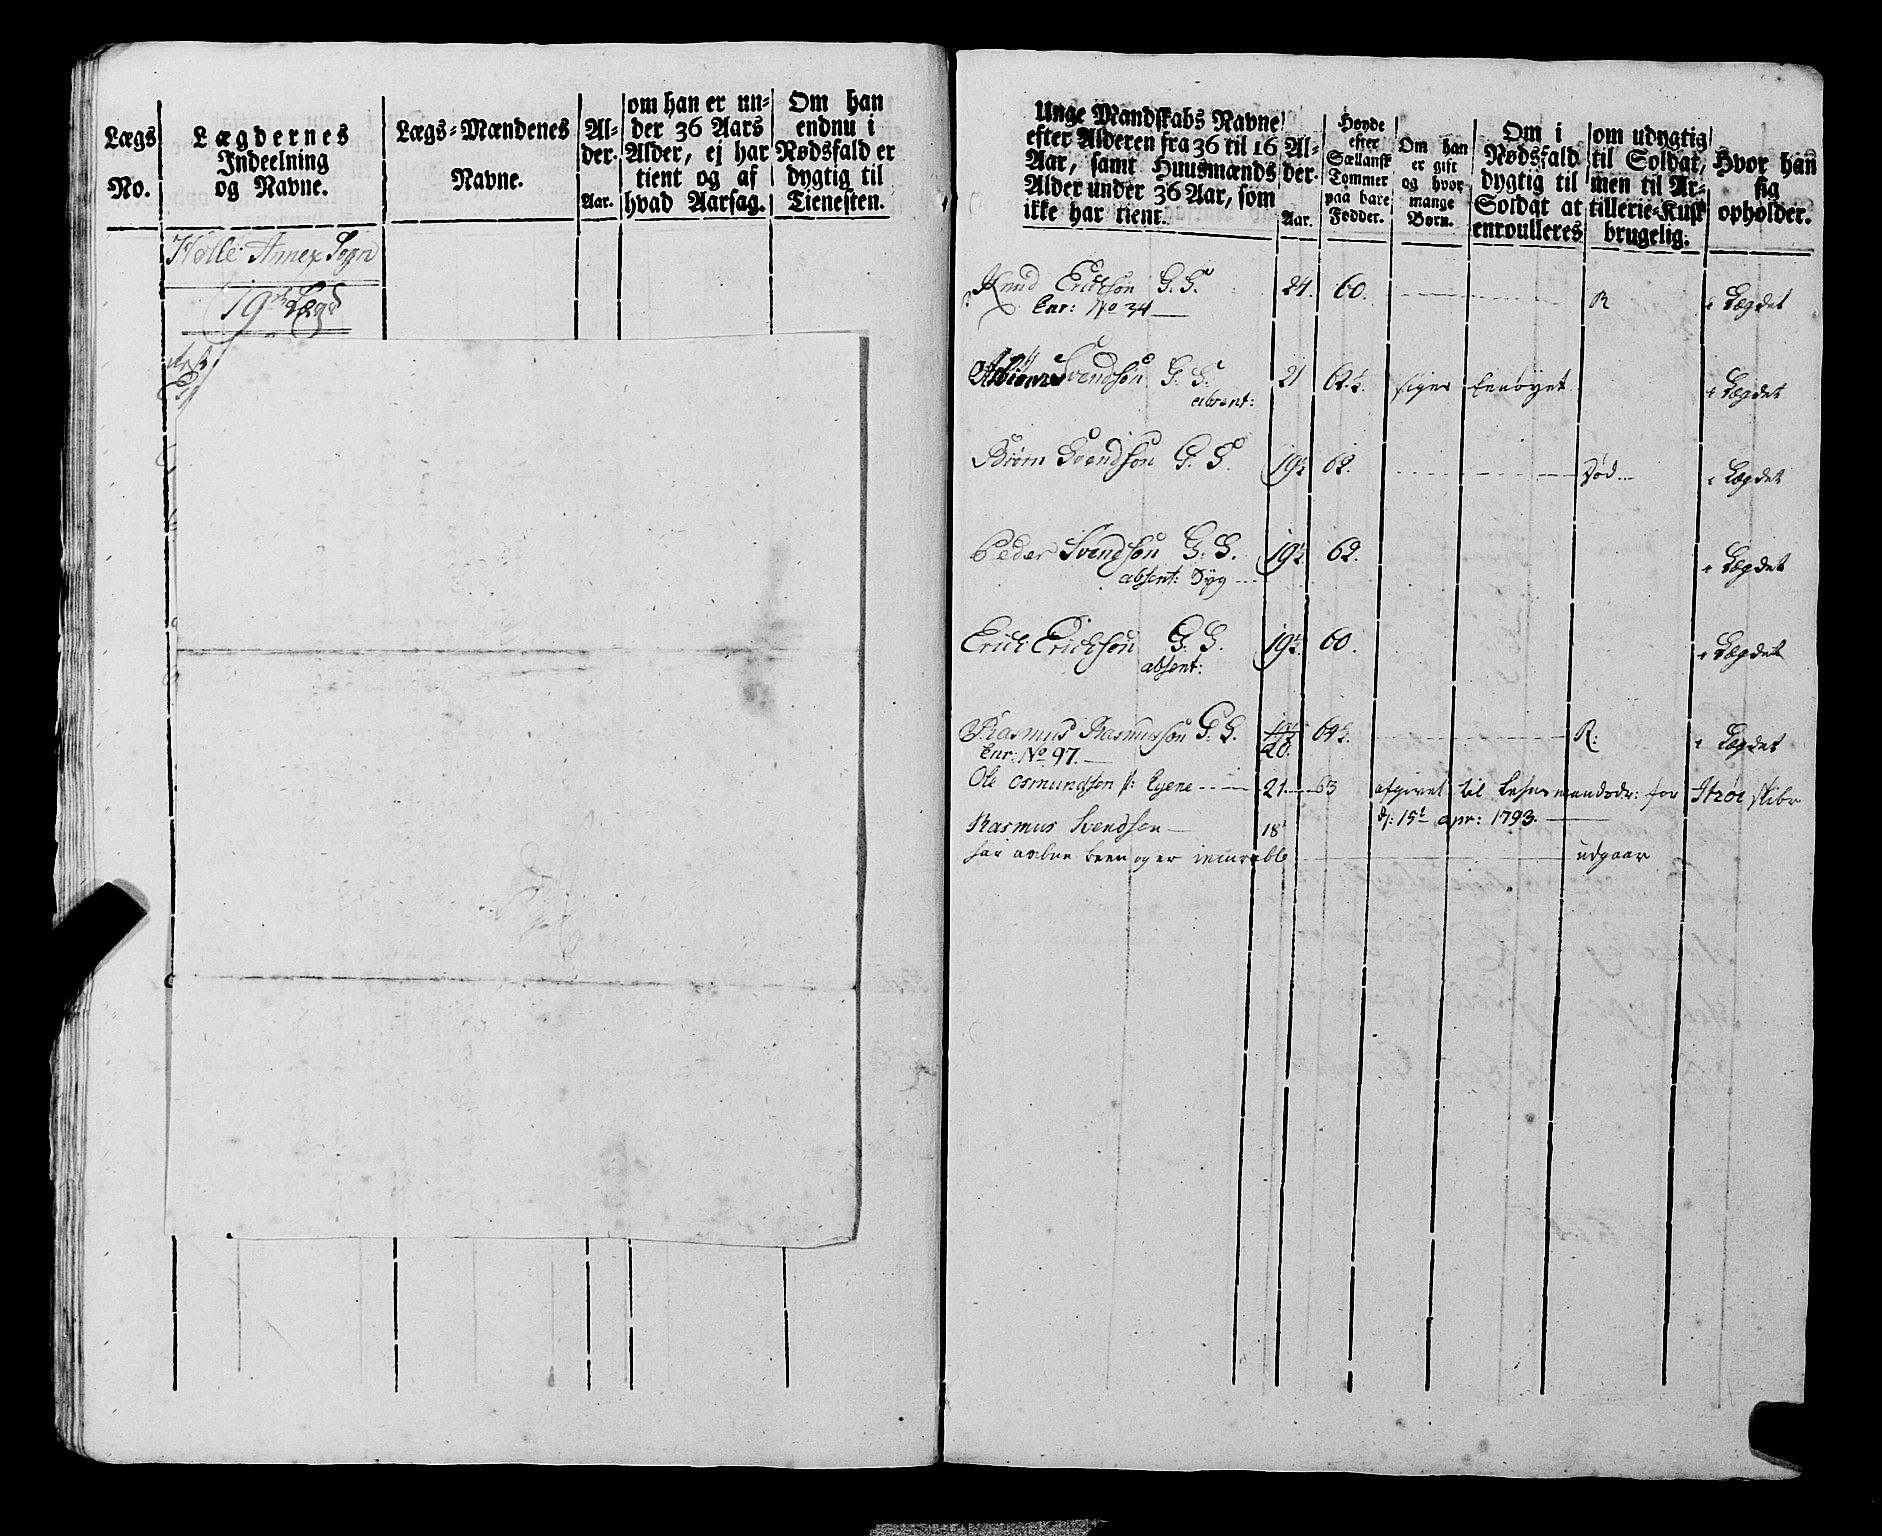 Lægs
No.
Lægdernes
Indeelning
og Navne.
Lægs-Mændenes
Navne.
Al-
der.
Aar.
om han er un-
der 36 Aars
Alder, ej har
tient og af
hvad Aarsag.
Om han
endnu i
Nødsfald er
dygtig til
Tienesten.
Helle Annex Sogn
19de Lægd
Unge Mandskabs Navne
efter Alderen fra 36 til 16
Aar, samt Huusmænds
Alder under 36 Aar, som
ikke har tient.
Al-
der.
Aar.
Høyde
efter
Sællansk
Tommer
paa bare
Fødder.
Om han
er gift
og hvor
mange
Børn.
Om i
Nødsfald
dygtig til
Soldat at
enroulleres
om udygtig
til Soldat,
men til Ar-
tillerie-Kusk
brugelig.
Hvor han
sig
opholder.
Knud Erichsøn G. S. 24. 60. R i Lægdet
Enr: No 34
Asbiørn Svendsøn G. S. 21 62½. siger Eenøyet i Lægdet
absent:
Biørn Svendsøn G. S. 19½ 62. Død i Lægdet
Peder Svendsøn G. S. 19½ 62. i Lægdet
absent: Syg
Erich Erichsøn G. S. 19½ 60. i Lægdet
absent:
Rasmus Rasmussøn G. S. 19½ 64½. R: i Lægdet
Enr: No 97. 20.
Ole Osmundsen p: Eyene 21 63 afgivet til Lehnsmandsdr: for Strøe skibr
Rasmus Svendsen 18 d: 15t apr: 1793.
har aabne been og er incurable udgaar